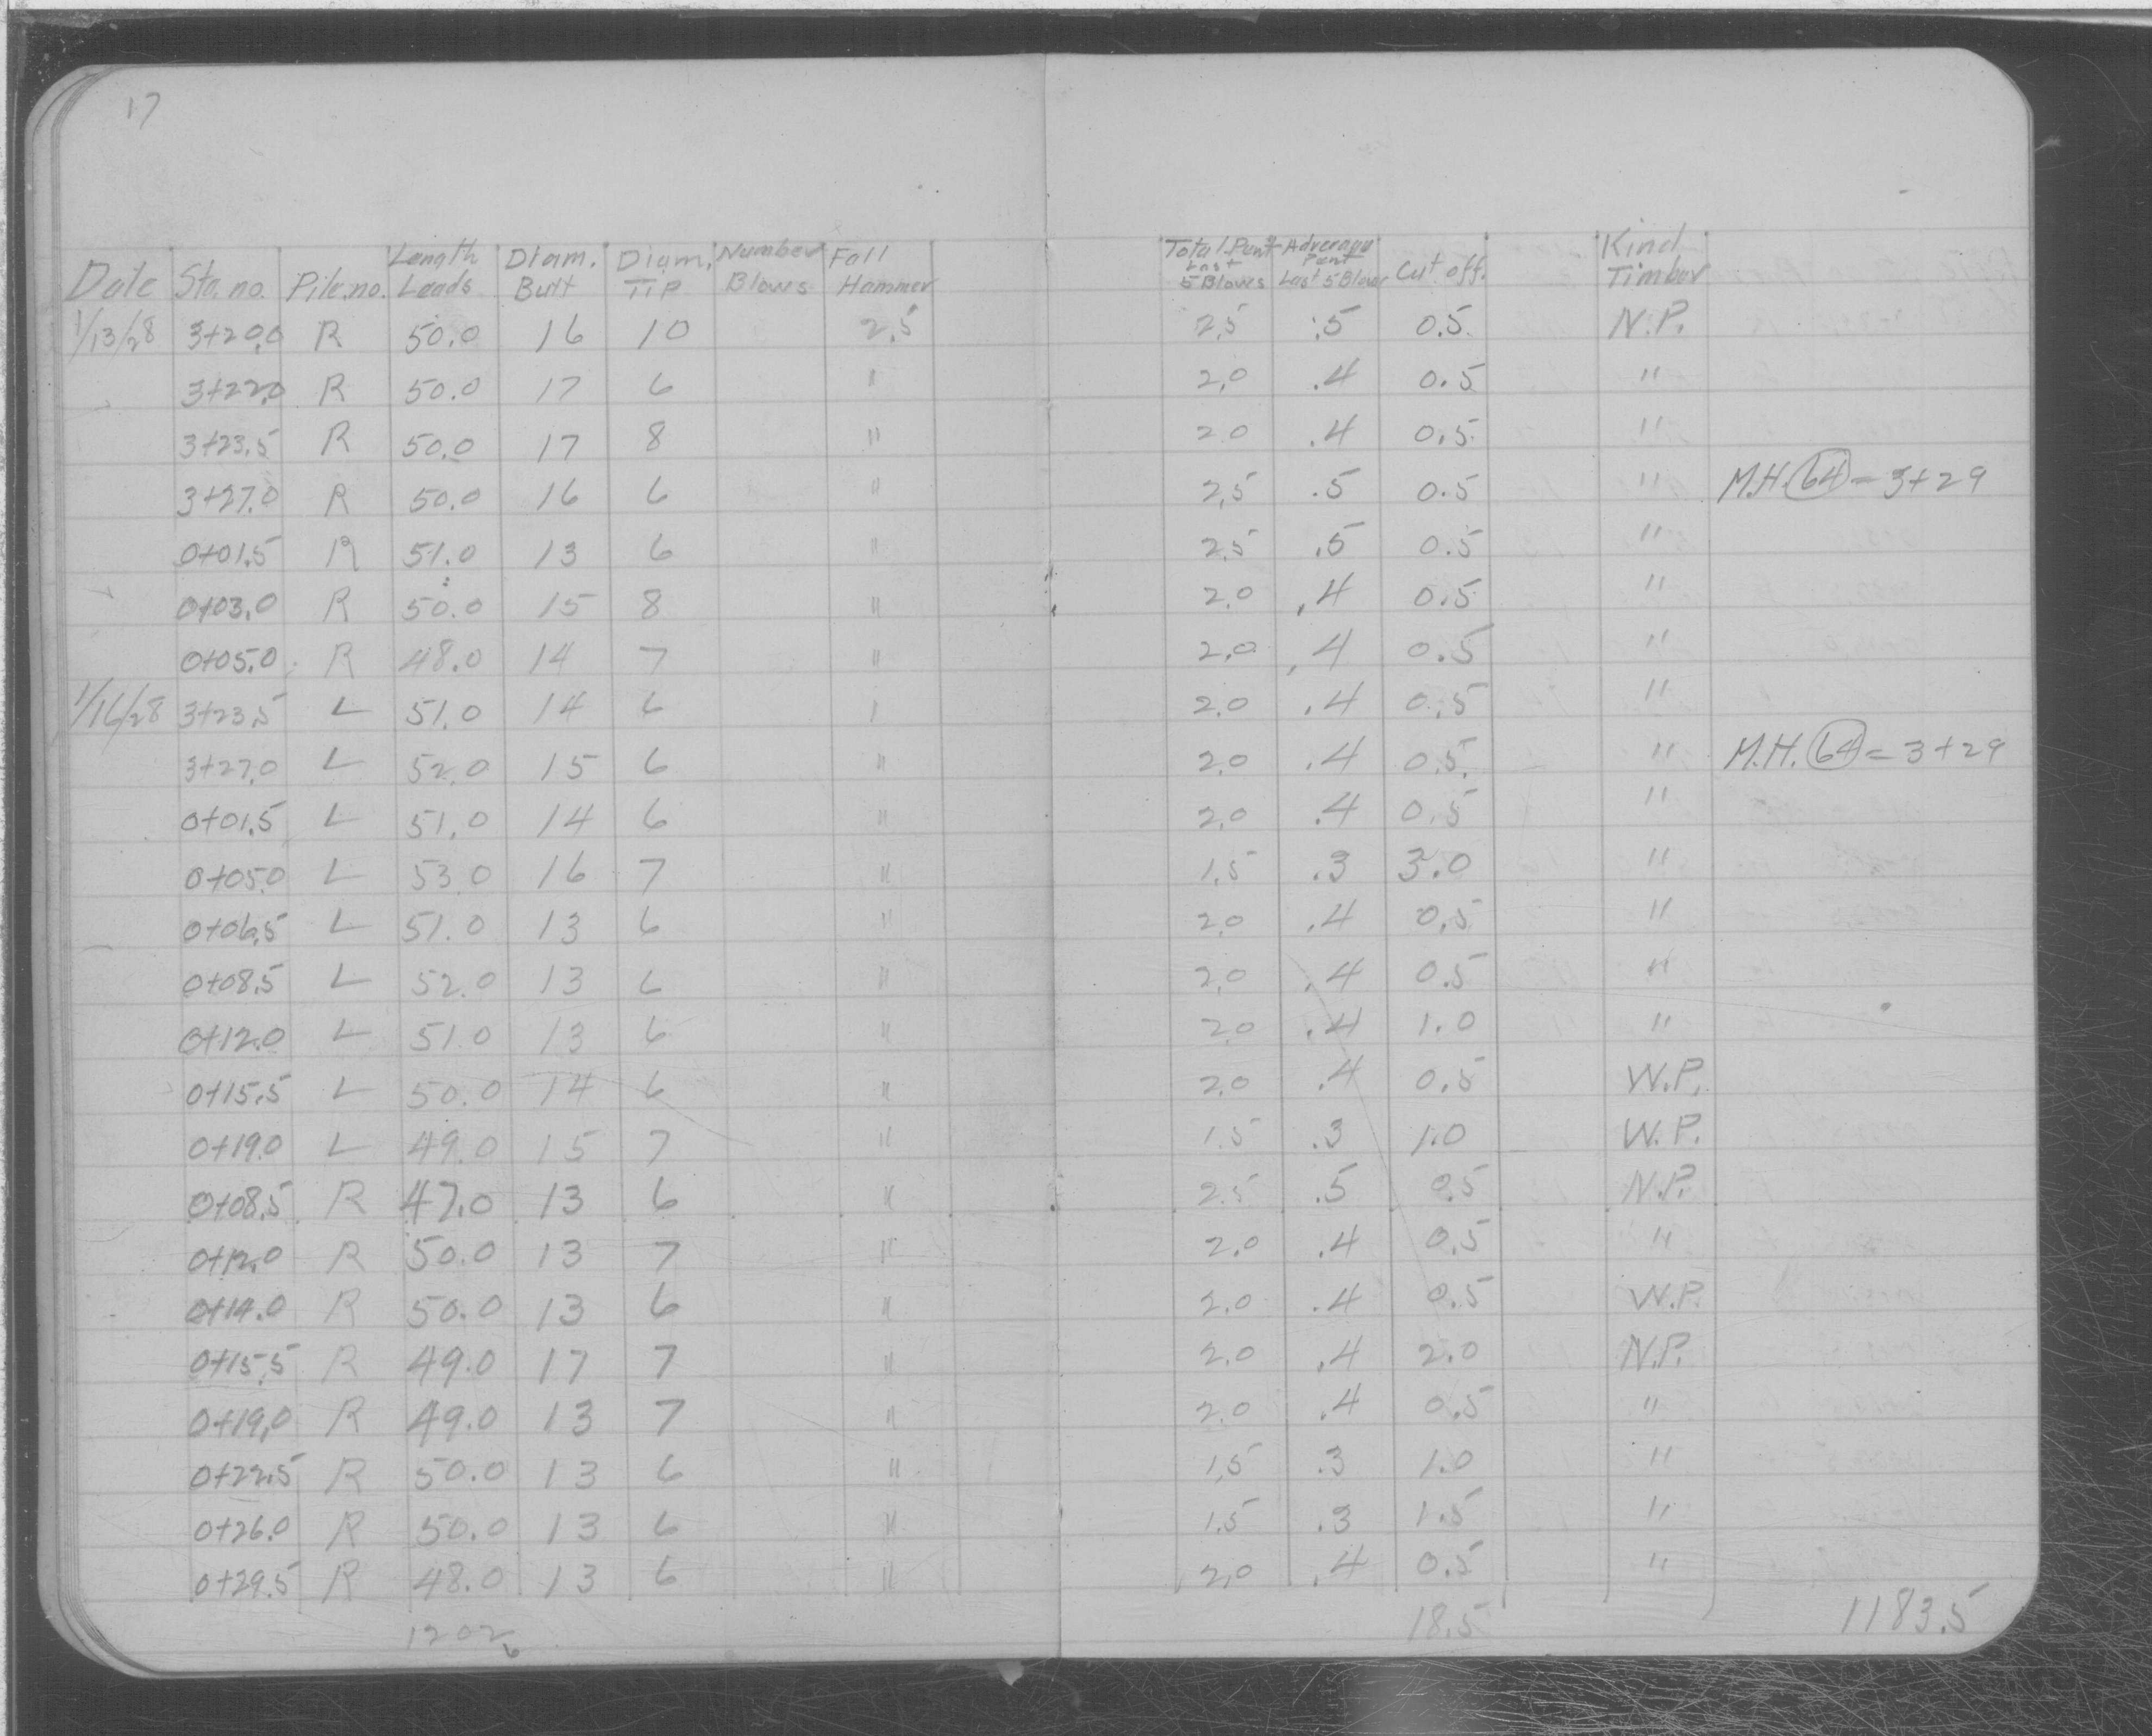 17
Date Sta. no. Pile. no. Length Leads Diam. Butt Diam. TIP Number Blows Fall Hammer Total Pent Last 5 Blows Adverage Pent Last 5 Blows Cut off. Kind Timber
1/13/28 3+20.0 R 50.0 16 10 2.5 2.5 .5 0.5 N.P.
3+22.0 R 50.0 17 6 " 2.0 .4 0.5 "
3+23.5 R 50.0 17 8 " 2.0 .4 0.5 "
3+27.0 R 50.0 16 6 " 2.5 .5 0.5 " M.H. 64 = 3+29
0+01.5 R 51.0 13 6 " 2.5 .5 0.5 "
0+03.0 R 50.0 15 8 " 2.0 .4 0.5 "
0+05.0 R 48.0 14 7 " 2.0 .4 0.5 "
1/16/28 3+23.5 L 51.0 14 6 " 2.0 .4 0.5 "
3+27.0 L 52.0 15 6 " 2.0 .4 0.5 " M.H. 64 = 3+29
0+01.5 L 51.0 14 6 " 2.0 .4 0.5 "
0+05.0 L 53.0 16 7 " 1.5 .3 3.0 "
0+06.5 L 51.0 13 6 " 2.0 .4 0.5 "
0+08.5 L 52.0 13 6 " 2.0 .4 0.5 "
0+12.0 L 51.0 13 6 " 2.0 .4 1.0 "
0+15.5 L 50.0 14 6 " 2.0 .4 0.5 W.P.
0+19.0 L 49.0 15 7 " 1.5 .3 1.0 W.P.
0+08.5 R 47.0 13 6 " 2.5 .5 0.5 N.P.
0+12.0 R 50.0 13 7 " 2.0 .4 0.5 "
0+14.0 R 50.0 13 6 " 2.0 .4 0.5 W.P.
0+15.5 R 49.0 17 7 " 2.0 .4 2.0 N.P.
0+19.0 R 49.0 13 7 " 2.0 .4 0.5 "
0+22.5 R 50.0 13 6 " 1.5 .3 1.0 "
0+26.0 R 50.0 13 6 " 1.5 .3 1.5 "
0+29.5 R 48.0 13 6 " 2.0 .4 0.5 "
1202 18.5 1183.5